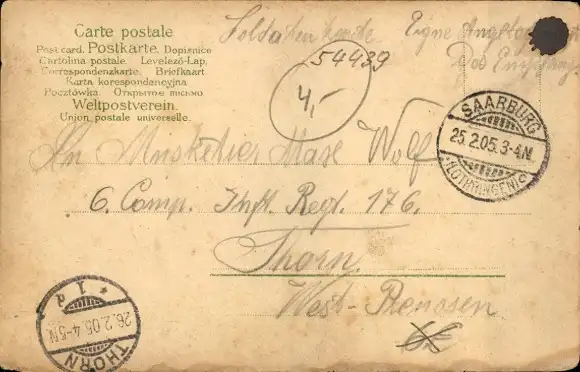 Carte postale
Post card. Postkarte. Dopisnice
Cartolina postale. Levelező-Lap.
Correspondenzkarte. Briefkaart
Karta korespondencyjna
Pocztówka. Открытое письмо
Weltpostverein.
Union postale universelle.
Soldatenkarte Eigne Angelegenheit
Des Empfängers
54439
4,-
SAARBURG
25.2.05.3-4N.
(LOTHRINGEN) C
An Musketier Maxe Wolf
6. Comp. Inft. Regt. 176.
Thorn
West-Preussen
* 1 d
26.2.05.4-5N.
THORN